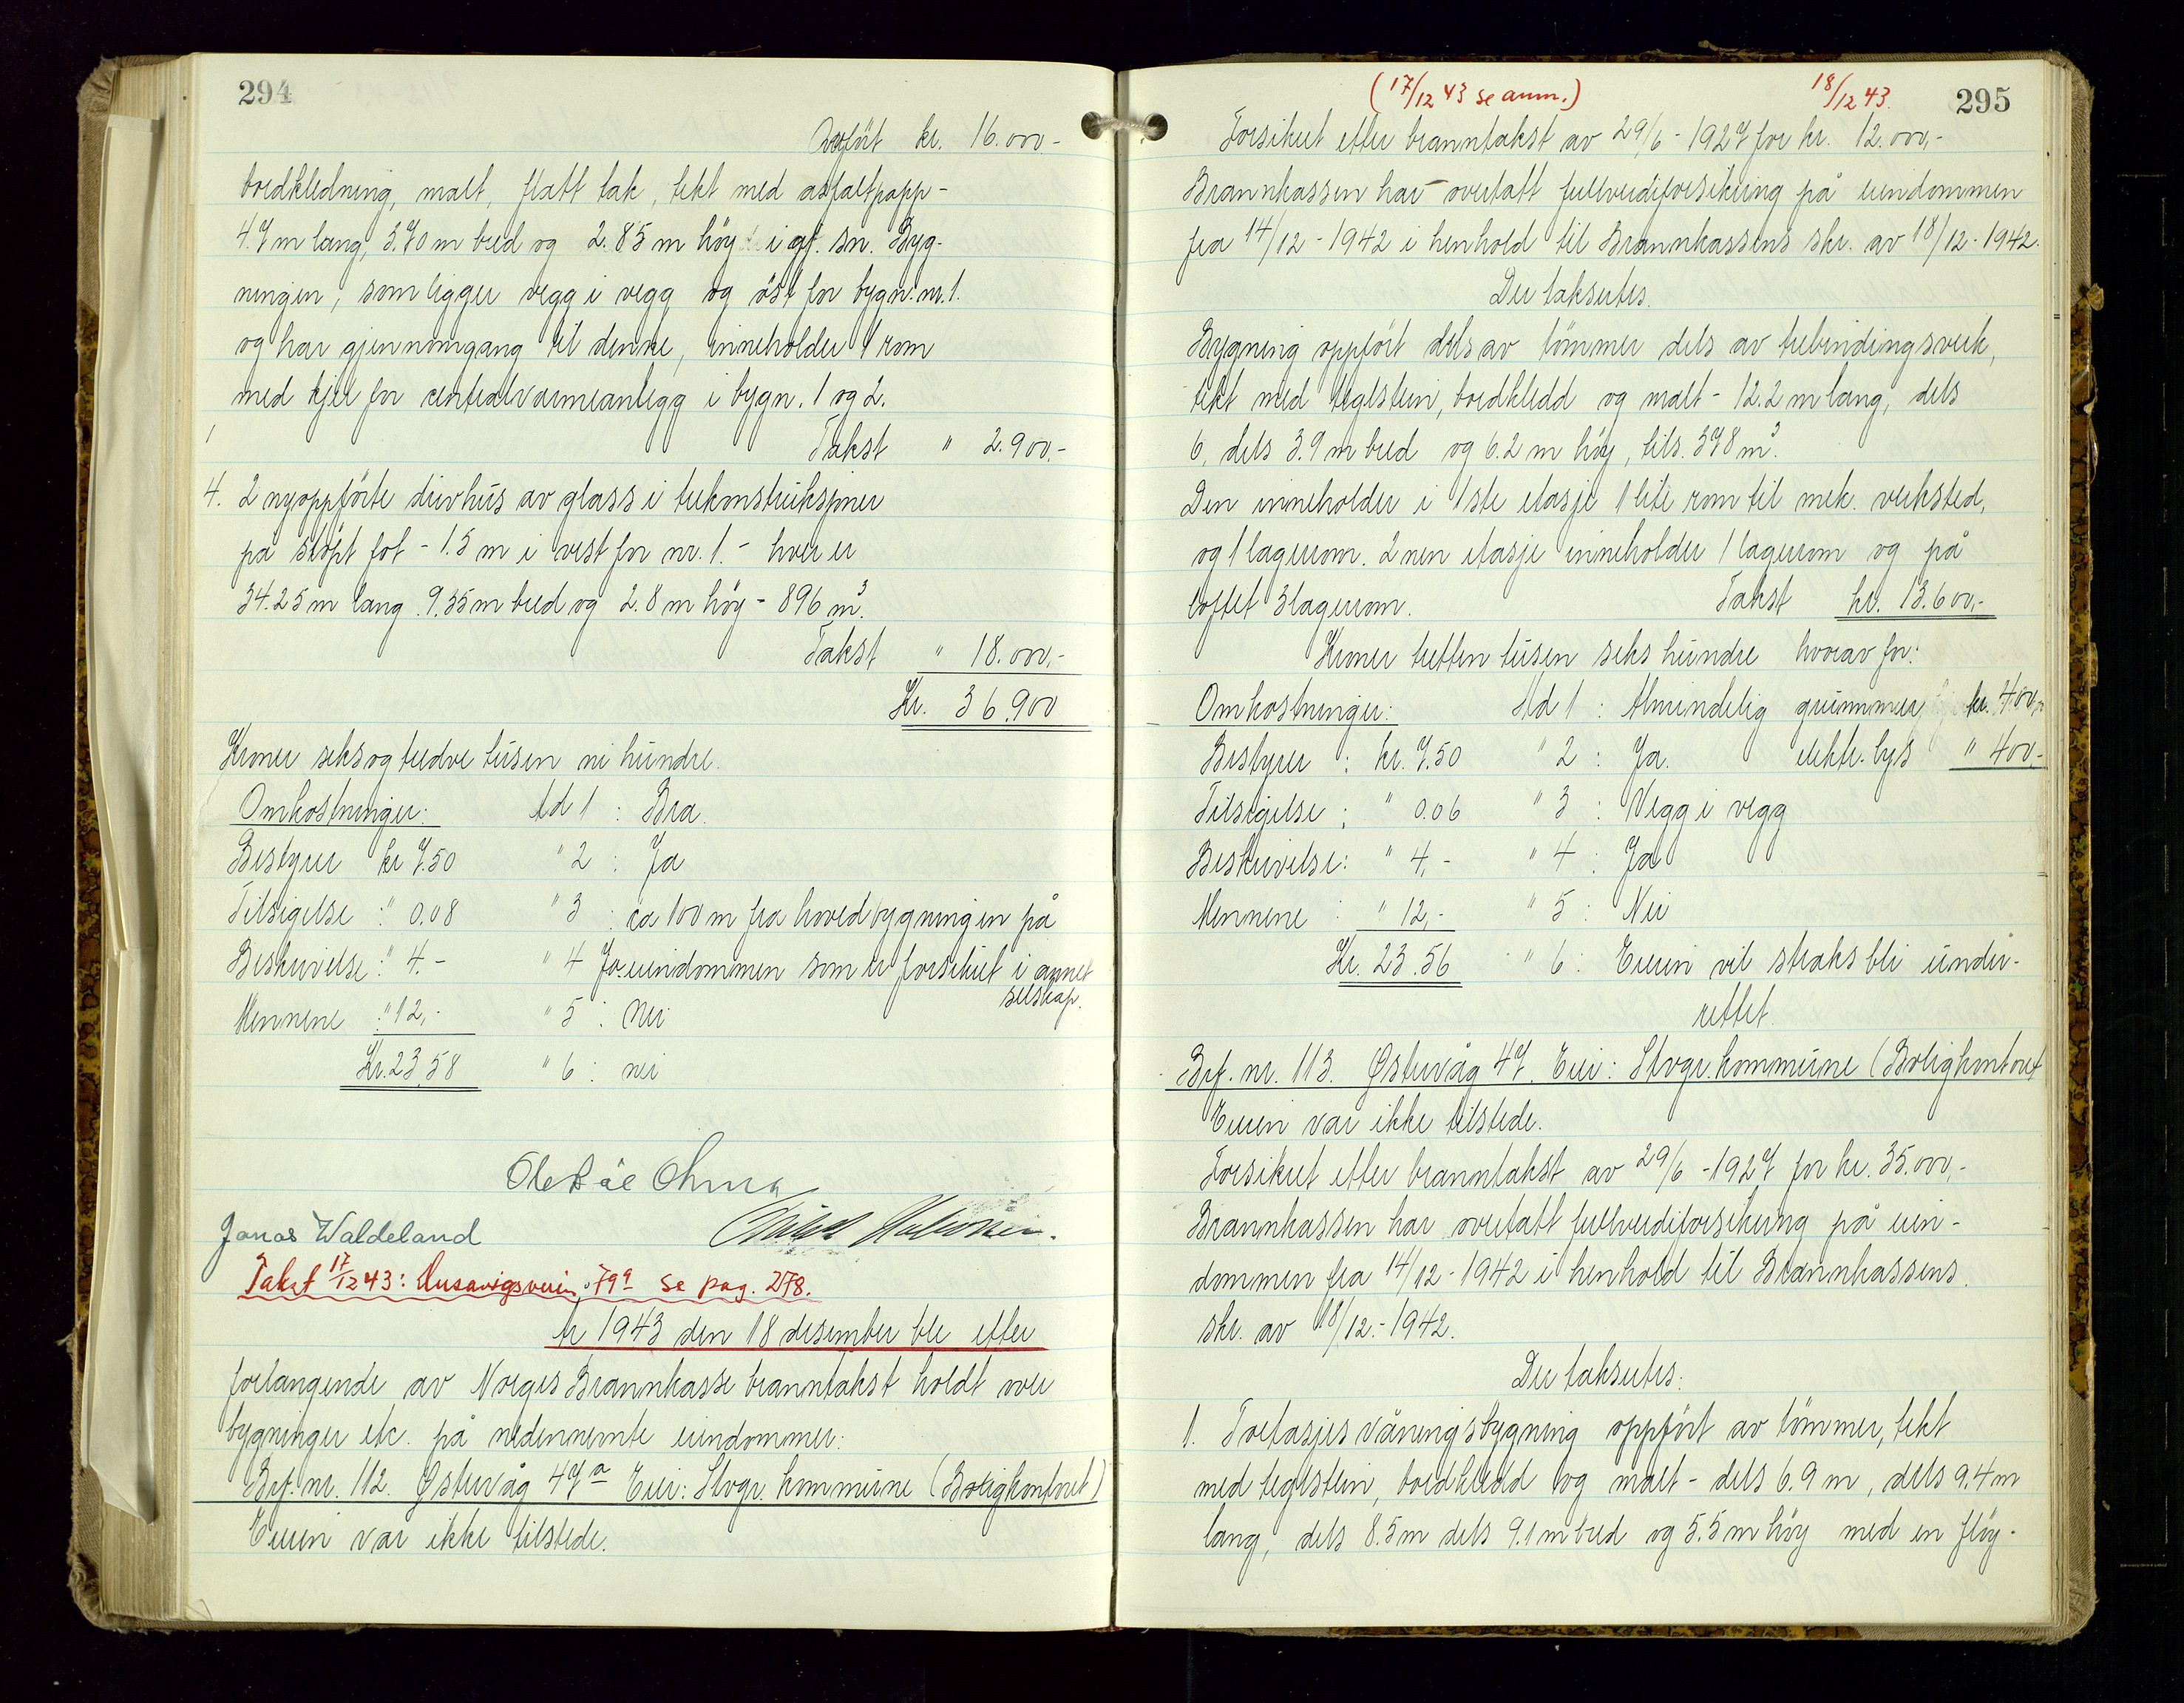 294
Overført kr. 16.000.-
bordkledning, malt, flatt tak, tekt med asfaltpapp -
4.7 m lang, 3.70 m bred og 2.85 m høy i gj. sn. Byg-
ningen, som ligger vegg i vegg og øst for bygn. nr. 1.
og har gjennomgang til denne, inneholder 1 rom
med kjel for centralvarmeanlegg i bygn. 1 og 2.
Takst " 2.900.-
4. 2 nyoppførte drivhus av glass i trekonstruksjoner
på støpt fot - 1.5 m i vest for nr. 1. - hver er
34.25 m lang 9.35 m bred og 2.8 m høy - 896 m³.
Takst " 18.000,-
Kr. 36.900
Kroner seksogtredve tusen ni hundre.
Omkostninger: Ad 1 : Bra.
Bestyrer kr 7.50 " 2 : Ja
Tilsigelse : " 0.08 " 3 : ca 100 m fra hovedbygningen på
Beskrivelse : " 4.- " 4 Ja eiendommen som er forsikret i annet
selskap.
Mennene : " 12,- " 5 : Nei
Kr. 23.58 " 6 : nei
Jonas Waldeland
Takst 17/12 43: 79a se pag. 278.
År 1943 den 18 desember ble etter
forlangende av Norges Brannkasse branntakst holdt over
bygninger etc. på nedennevnte eiendommer:
Brf. nr. 112. Østervåg 47a Eier: Stvgr. kommune (Boligkontoret)
Eieren var ikke tilstede.
(17/12 43 se anm.) 18/12 43. 295
Forsikret etter branntakst av 29/6 - 1927 for kr. 12.000,-
Brannkassen har overtatt fullverdiforsikring på eiendommen
fra 14/12 - 1942 i henhold til Brannkassens skr. av 18/12 - 1942.
Der takseres.
Bygning oppført dels av tømmer dels av trebindingsverk,
tekt med teglstein, bordkledd og malt - 12.2 m lang, dels
6, dels 3.9 m bred og 6.2 m høy, tils. 378 m³.
Den inneholder i 1ste etasje 1 lite rom til mek. verksted,
og 1 lagerrom. 2nen etasje inneholder 1 lagerrom og på
loftet 3 lagerrom. Takst kr. 13.600,-
Kroner tretten tusen seks hundre hvorav for:
Omkostninger: Ad 1 : Almindelig grunnmur kr. 400,-
Bestyrer : kr. 7.50 " 2 : Ja. elektr. lys " 400.-
Tilsigelse : " 0.06 " 3 : Vegg i vegg
Beskrivelse : " 4,- " 4 : Ja
Mennene : " 12,- " 5 : Nei
Kr. 23.56 " 6 : Eieren vil straks bli under-
rettet.
Brf. nr. 113. Østervåg 47. Eier: Stvgr. kommune (Boligkontoret
Eieren var ikke tilstede.
Forsikret etter branntakst av 29/6 - 1927 for kr. 35.000,-
Brannkassen har overtatt fullverdiforsikring på eien-
dommen fra 14/12 - 1942 i henhold til Brannkassens
skr. av 18/12. - 1942.
Der takseres:
1. Toetasjes våningsbygning oppført av tømmer, tekt
med teglstein, bordkledd og malt - dels 6.9 m, dels 9.4 m
lang, dels 8.5 m dels 9.1 m bred og 5.5 m høy med en fløy-